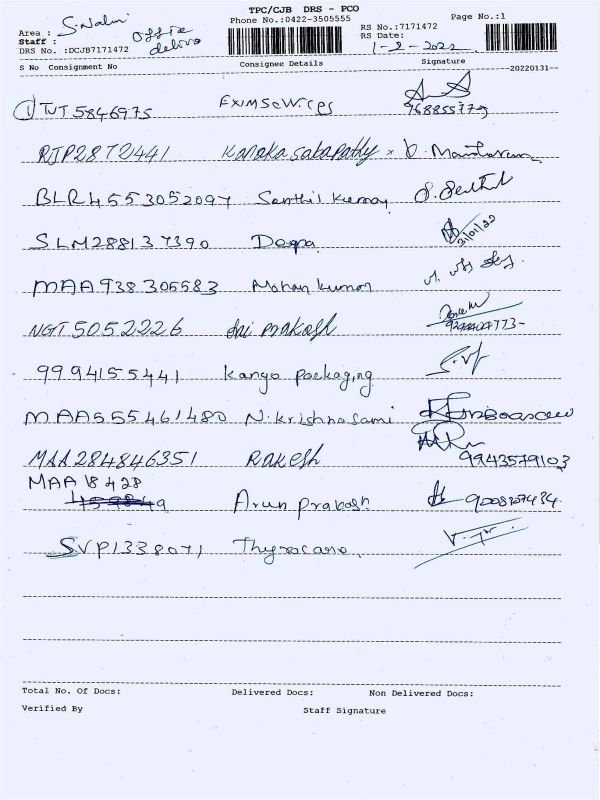 TPC/CJB DRS - PCO
Phone No.:0422-3505555
Page No.:1
Area : S.Nalni Office
Staff :
DRS No. :DCJB7171472
RS No.:7171472
RS Date:
1-2-2022
S No Consignment No Consignee Details Signature --20220131--
1 TUT 5846975
RJP2872441 Kanaka sabapathy
BLR4553052097 Senthil kumar
SLM288137390 Deepa 31/01/22
MAA938305583 Mohan kumar
NGT5052226 Sai prakash
9994155441 Kanga packaging
MAA555461480 N.krishnasami
MAA284846351 Rakesh 9943579103
MAA 18428
Arun prakash
SVP1338071 Thyrocare
Total No. Of Docs: Delivered Docs: Non Delivered Docs:
Verified By Staff Signature